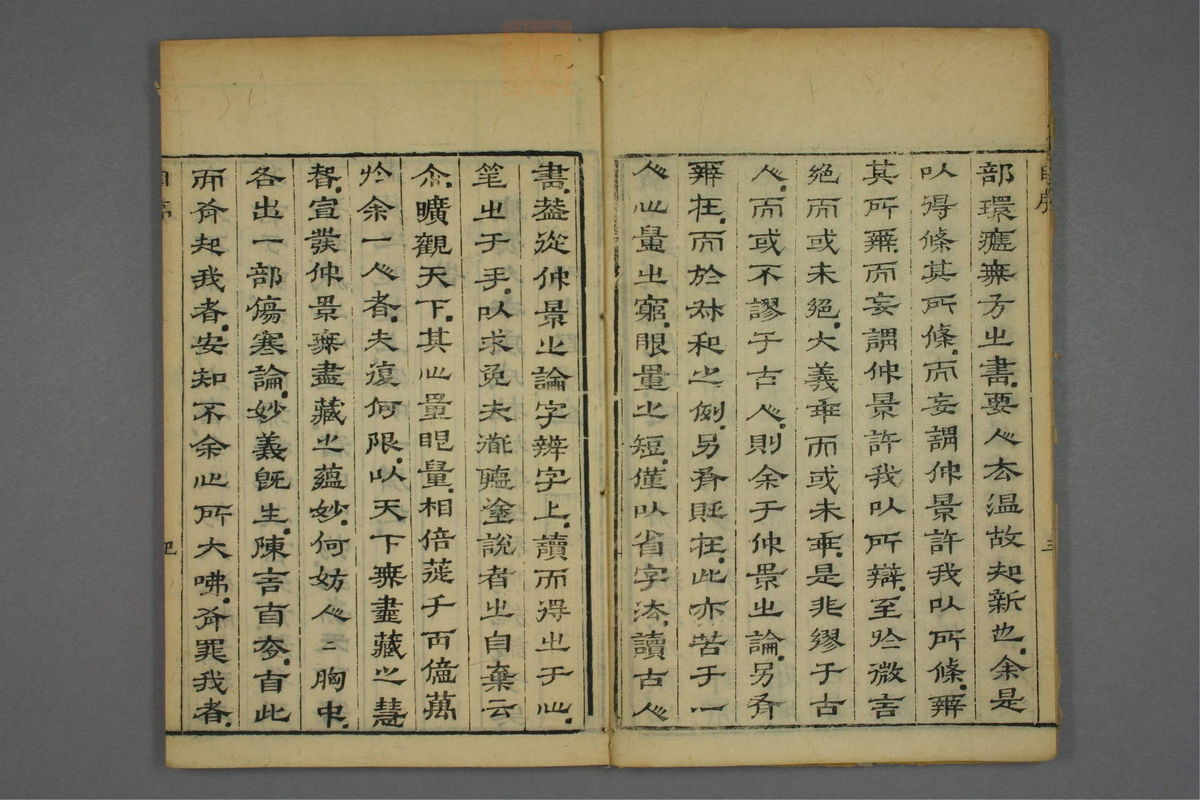 自序
三
部環應無方之書要人去温故知新也余是
以得條其所條而妄謂仲景許我以所條辨
其所辨而妄謂仲景許我以所辯至於微言
絕而或未絕大義乖而或未乖是非繆于古
人而或不謬于古人則余于仲景之論另有
辨在而於叔和之例另有貶在此亦苦于一
人心量之窮眼量之短僅以省字法讀古人
書葢從仲景之論字辨字上讀而得之于心
笔之于手以求免夫道聽塗說者之自棄云
尒曠觀天下其心量眼量相倍蓰千百億萬
於余一人者夫復何限以天下無盡藏之慧
智宣發仲景無盡藏之蘊妙何妨人〻胸中
各出一部傷寒論妙義旣生陳言自自此
而有起我者安知不余之所大咈有罪我者
自序
四